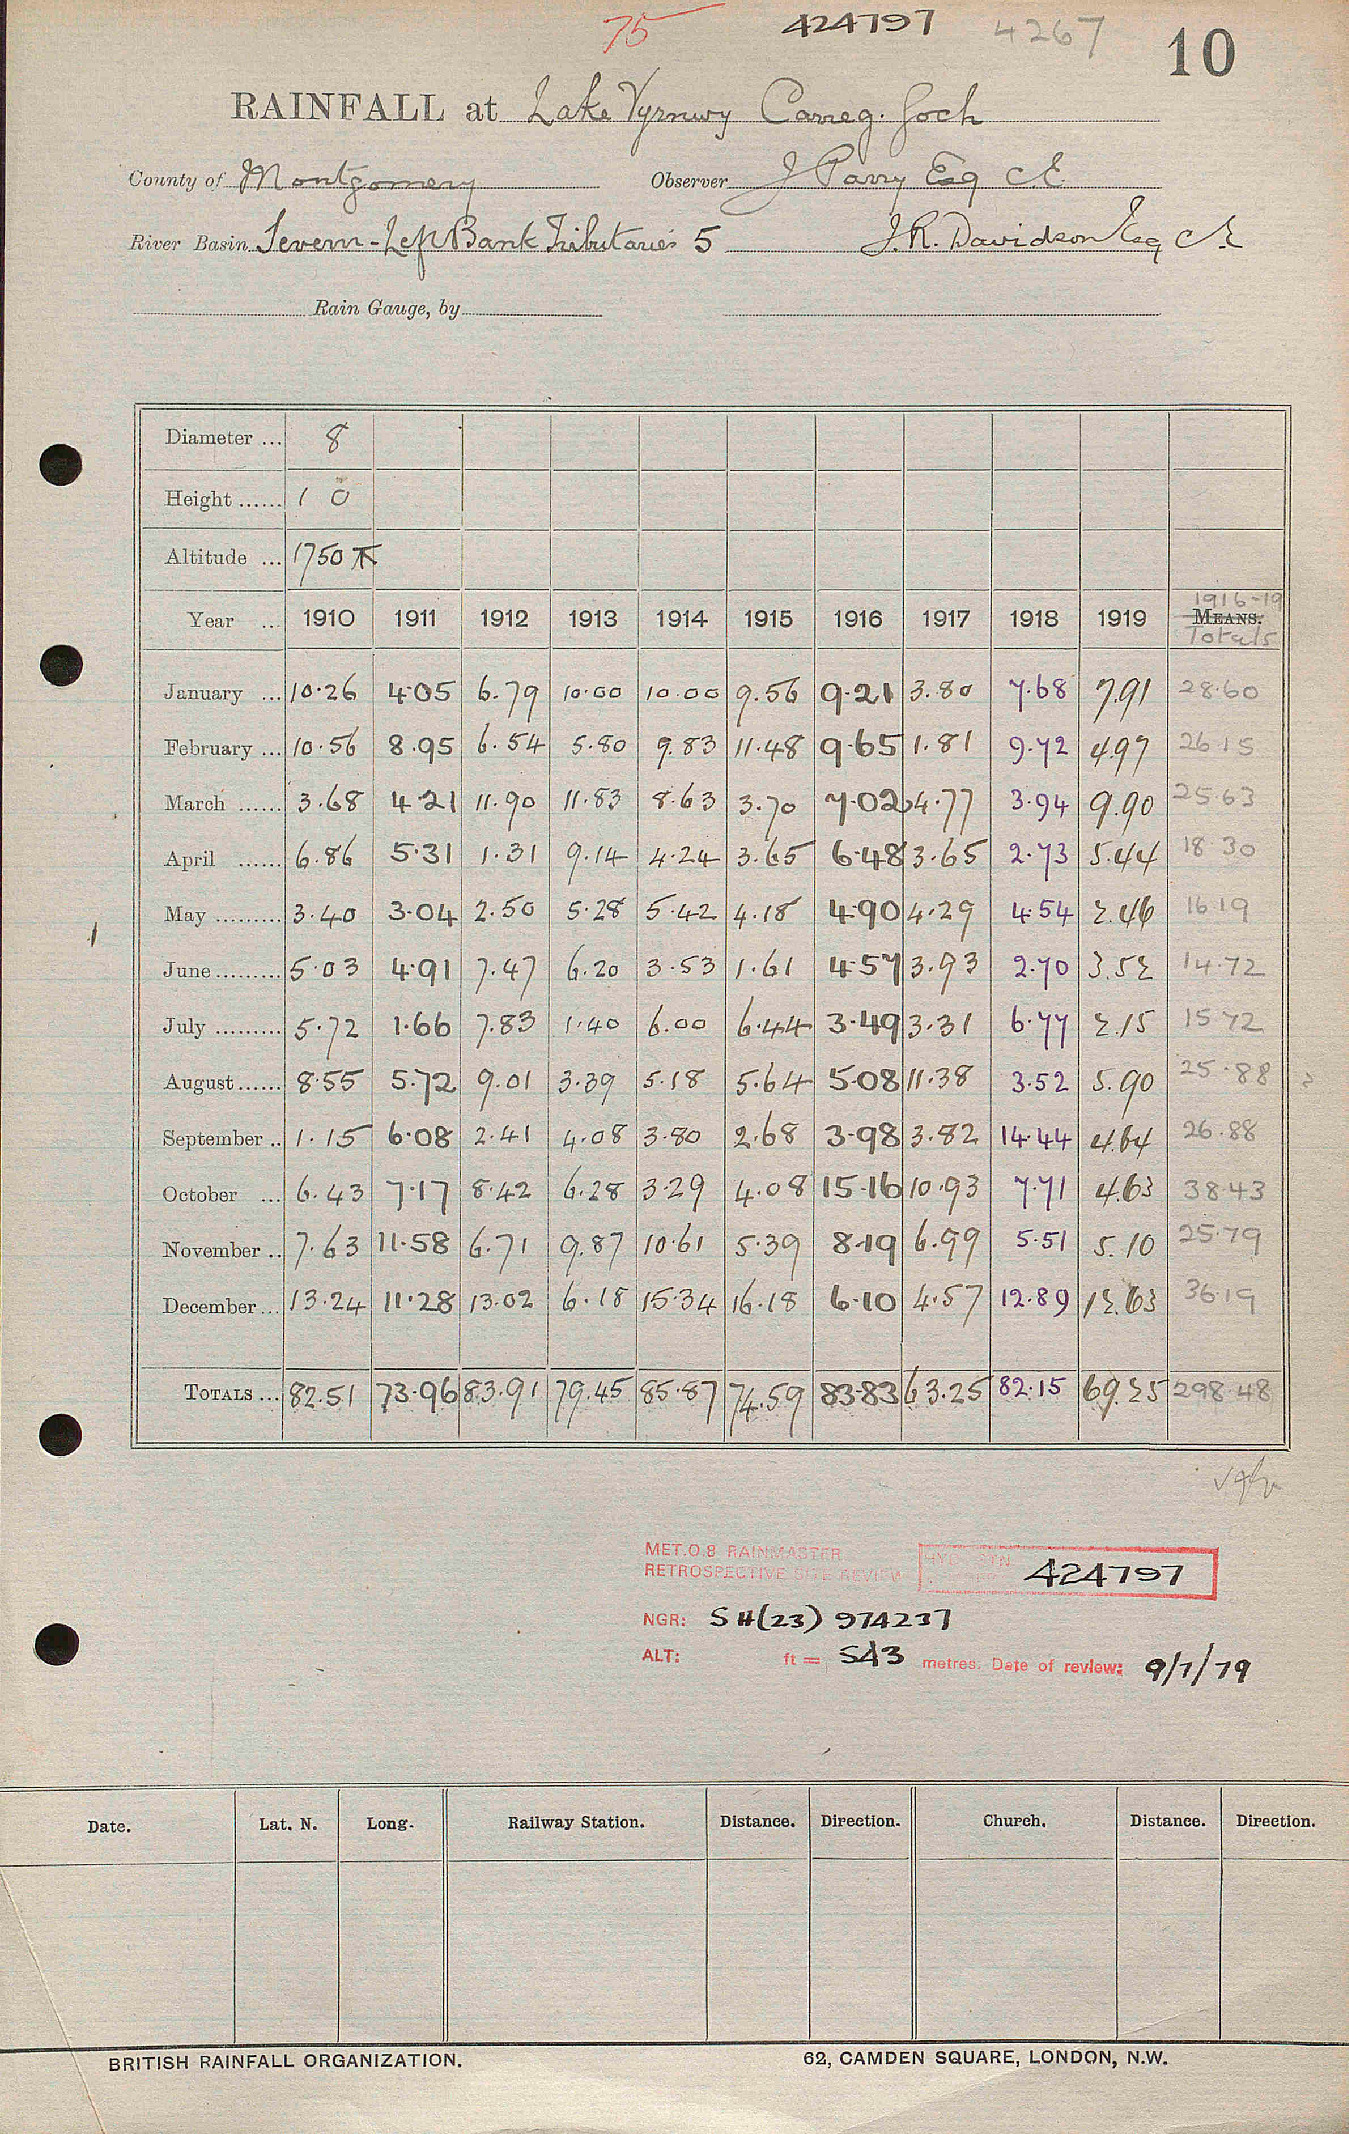 75 424797 4267 10
RAINFALL at Lake Vyrnwy Carreg. Goch
County of Montgomery Observer J Parry Esq C.E.
River Basin Severn - Left Bank Tributaries 5 J.R. Davidson Esq C.E
Rain Gauge, by
Diameter ... 8
Height ...... 1 0
Altitude ... 1750
1916-19
Year ... 1910 1911 1912 1913 1914 1915 1916 1917 1918 1919 MEANS.
Totals
January ... 10.26 4.05 6.79 10.00 10.00 9.56 9.21 3.80 7.68 7.91 28.60
February ... 10.56 8.95 6.54 5.80 9.83 11.48 9.65 1.81 9.72 4.97 26.15
March ...... 3.68 4.21 11.90 11.83 8.63 3.70 7.02 4.77 3.94 9.90 25.63
April ...... 6.86 5.31 1.31 9.14 4.24 3.65 6.48 3.65 2.73 5.44 18.30
May ......... 3.40 3.04 2.50 5.28 5.42 4.18 4.90 4.29 4.54 2.46 16.19
June ......... 5.03 4.91 7.47 6.20 3.53 1.61 4.57 3.93 2.70 3.52 14.72
July ......... 5.72 1.66 7.83 1.40 6.00 6.44 3.49 3.31 6.77 2.15 15.72
August ...... 8.55 5.72 9.01 3.39 5.18 5.64 5.08 11.38 3.52 5.90 25.88
September .. 1.15 6.08 2.41 4.08 3.80 2.68 3.98 3.82 14.44 4.64 26.88
October ... 6.43 7.17 8.42 6.28 3.29 4.08 15.16 10.93 7.71 4.63 38.43
November .. 7.63 11.58 6.71 9.87 10.61 5.39 8.19 6.99 5.51 5.10 25.79
December ... 13.24 11.28 13.02 6.18 15.34 16.18 6.10 4.57 12.89 12.63 36.19
TOTALS ... 82.51 73.96 83.91 79.45 85.87 74.59 83.83 63.25 82.15 69.25 298.48
MET.O.8 RAINMASTER
RETROSPECTIVE SITE REVIEW 424797
NGR: SH(23) 974237
ALT: ft = 543 metres. Date of review: 9/7/79
Date. Lat. N. Long. Railway Station. Distance. Direction. Church. Distance. Direction.
BRITISH RAINFALL ORGANIZATION. 62, CAMDEN SQUARE, LONDON, N.W.